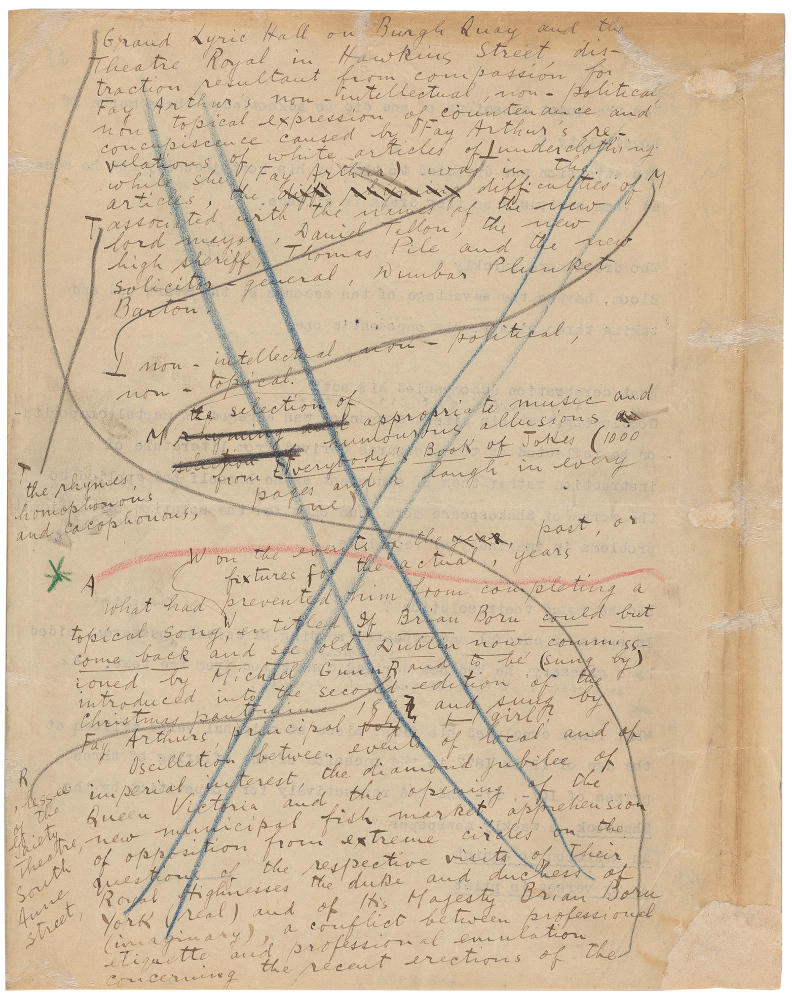 Grand Lyric Hall on Burgh Quay and the
Theatre Royal in Hawkins Street dis-
traction resultant from compassion for
Fay Arthur's non-intellectual, non-political
non-topical expression of countenance and
concupiscence caused by Fay Arthur's re-
velations of white articles of underclothing
while she (Fay Arthur) was in the
articles, the difficulties of
associated with the names of the new
lord mayor, Daniel Tallon, the new
high sheriff, Thomas Pile and the new
solicitor-general, Dunbar Plunket
Barton.
I non-intellectual non-political,
non-topical.
the selection of
M appropriate music and
humourous allusions
from Everybody's Book of Jokes (1000
pages and a laugh in every
one
T
the rhymes
homophonous
and cacophonous,
W on the events of the past, or
fixtures for the actual, years
A
What had prevented him from completing a
topical song, entitled If Brian Boru could but
come back and see old Dublin now commiss-
ioned by Michael Gunn R and to be (sung by)
introduced into the second edition of the
Christmas pantomime and sung by
Fay Arthur, principal girl?
Oscillation between events of local and of
imperial interest the diamond jubilee of
Queen Victoria and the opening of the
new municipal fish market apprehension
of opposition from extreme circles on the
questions of the respective visits of Their
Royal Highnesses the duke and duchess of
York (real) and of His Majesty Brian Boru
(imaginary), a conflict between professional
etiquette and professional emulation
concerning the recent erections of the
R
, lessee
of the
Gaiety
Theatre,
South
Anne
street,